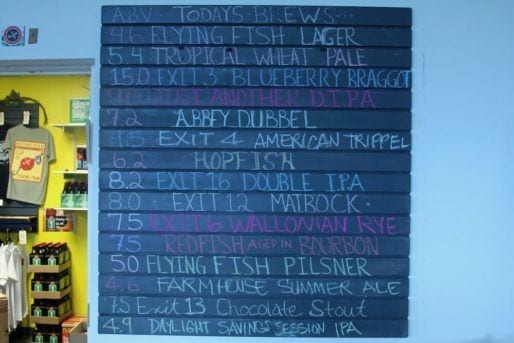 ABV TODAYS BREWS...
4.6 FLYING FISH LAGER
5.4 TROPICAL WHEAT PALE
15.0 EXIT 3 BLUEBERRY BRAGGOT
JUST ANOTHER D.I.PA
7.2 ABBEY DUBBEL
9.5 EXIT 4 AMERICAN TRIPPEL
6.2 HOPFISH
8.2 EXIT 16 DOUBLE I.P.A
8.0 EXIT 12 MAIBOCK
7.5 EXIT 6 WALLONIAN RYE
7.5 REDFISH AGED IN BOURBON
5.0 FLYING FISH PILSNER
4.6 FARMHOUSE SUMMER ALE
7.5 Exit 13 Chocolate Stout
4.9 DAYLIGHT SAVINGS SESSION IPA